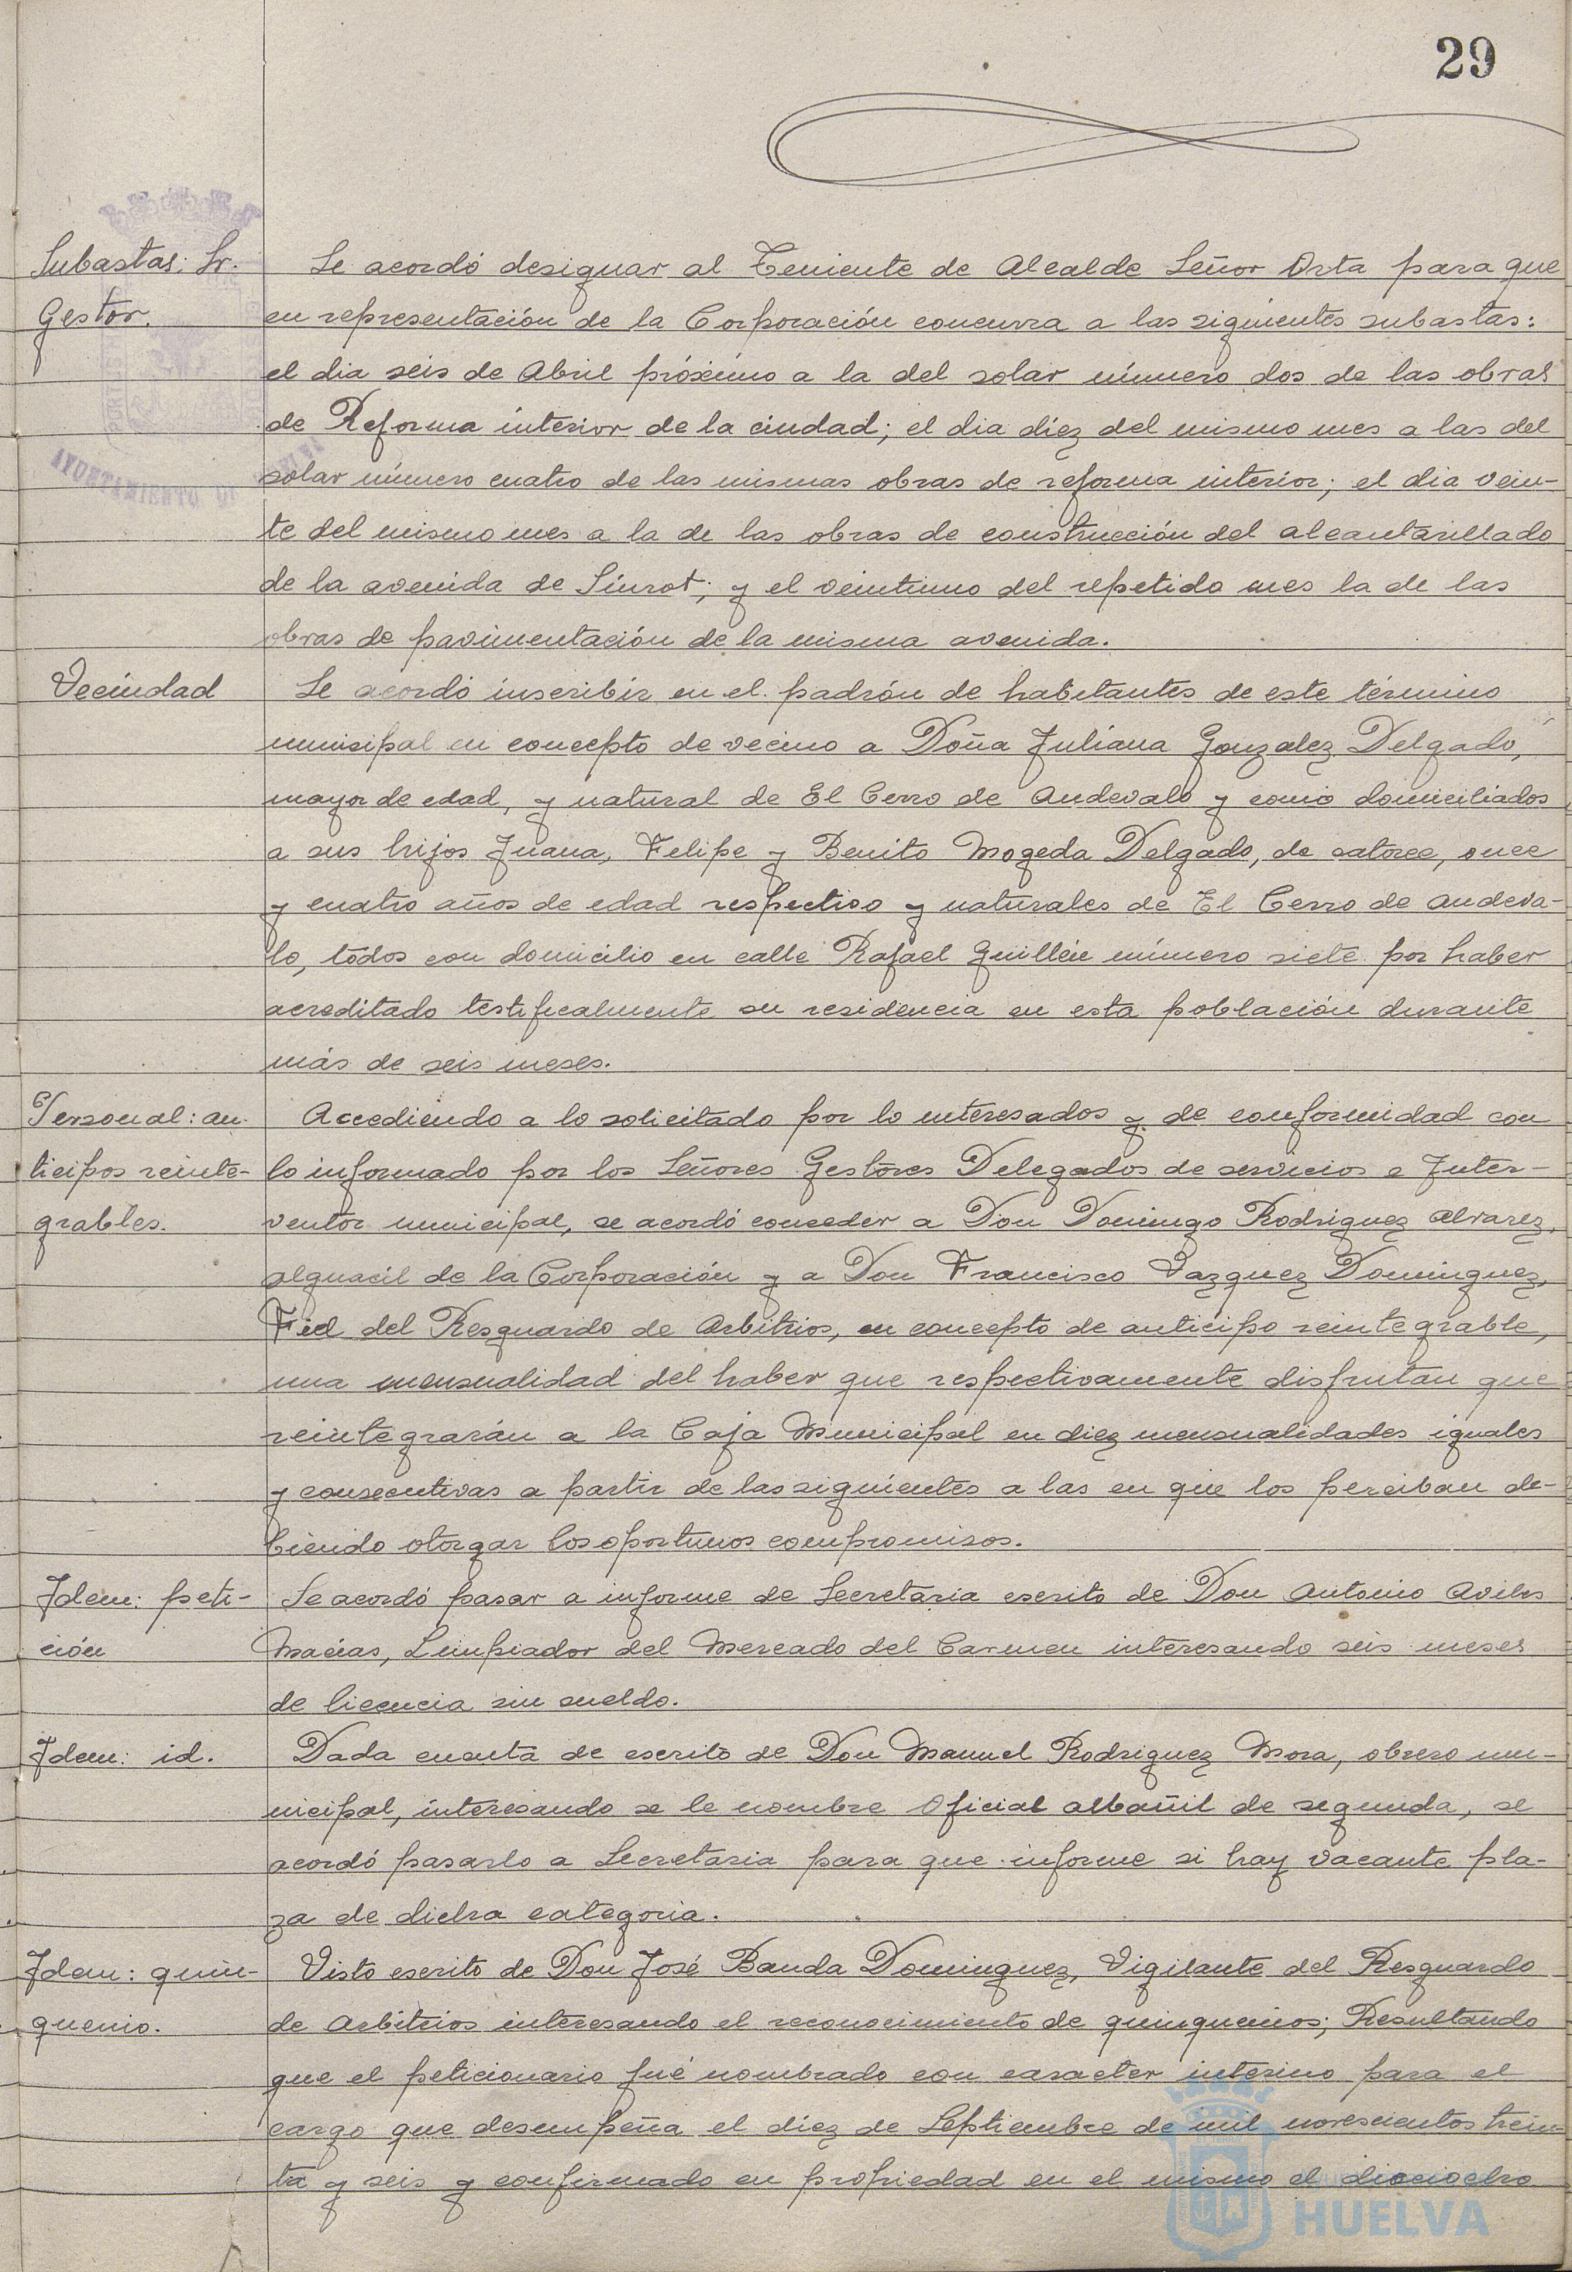 29
Subastas: Sr.
Gestor.
Se acordó designar al Teniente de Alcalde Señor Orta para que
en representación de la Corporación concurra a las siguientes subastas:
el dia seis de Abril próximo a la del solar número dos de las obras
de Reforma interior de la ciudad; el dia diez del mismo mes a las del
solar número cuatro de las mismas obras de reforma interior; el dia vein-
te del mismo mes a la de las obras de construcción del alcantarillado
de la avenida de Siurot; y el veintiuno del repetido mes la de las
obras de pavimentación de la misma avenida.
Vecindad
Se acordó inscribir en el padrón de habitantes de este término
municipal en concepto de vecino a Doña Juliana Gonzalez Delgado,
mayor de edad, y natural de El Cerro de Andevalo y como domiciliados
a sus hijos Juana, Felipe y Benito Mogeda Delgado, de catorce, once
y cuatro años de edad respectivo y naturales de El Cerro de Andeva-
lo, todos con domicilio en calle Rafael Guillén número siete por haber
acreditado testificalmente su residencia en esta población durante
más de seis meses.
Personal: an-
ticipos reinte-
grables.
Accediendo a lo solicitado por lo interesados y de conformidad con
lo informado por los Señores Gestores Delegados de servicios e Inter-
ventor municipal, se acordó conceder a Don Domingo Rodriguez Alvarez,
alguacil de la Corporación y a Don Francisco Vazquez Dominguez,
Fiel del Resguardo de Arbitrios, en concepto de anticipo reintegrable,
una mensualidad del haber que respectivamente disfrutan que
reintegrarán a la Caja Municipal en diez mensualidades iguales
y consecutivas a partir de las siguientes a las en que los perciban de-
biendo otorgar los oportunos compromisos.
Idem: peti-
ción
Se acordó pasar a informe de Secretaria escrito de Don Antonio Aviles
Macias, Limpiador del Mercado del Carmen interesando seis meses
de licencia sin sueldo.
Idem: id.
Dada cuenta de escrito de Don Manuel Rodriguez Mora, obrero mu-
nicipal, interesando se le nombre Oficial albañil de segunda, se
acordó pasarlo a Secretaria para que informe si hay vacante pla-
za de dicha categoria.
Idem: quin-
quenio.
Visto escrito de Don José Banda Dominguez, Vigilante del Resguardo
de Arbitrios interesando el reconocimiento de quinquenios; Resultando
que el peticionario fué nombrado con caracter interino para el
cargo que desempeña el diez de Septiembre de mil novescientos trein-
ta y seis y confirmado en propiedad en el mismo el dieciocho
AYUNTAMIENTO DE HUELVA
HUELVA